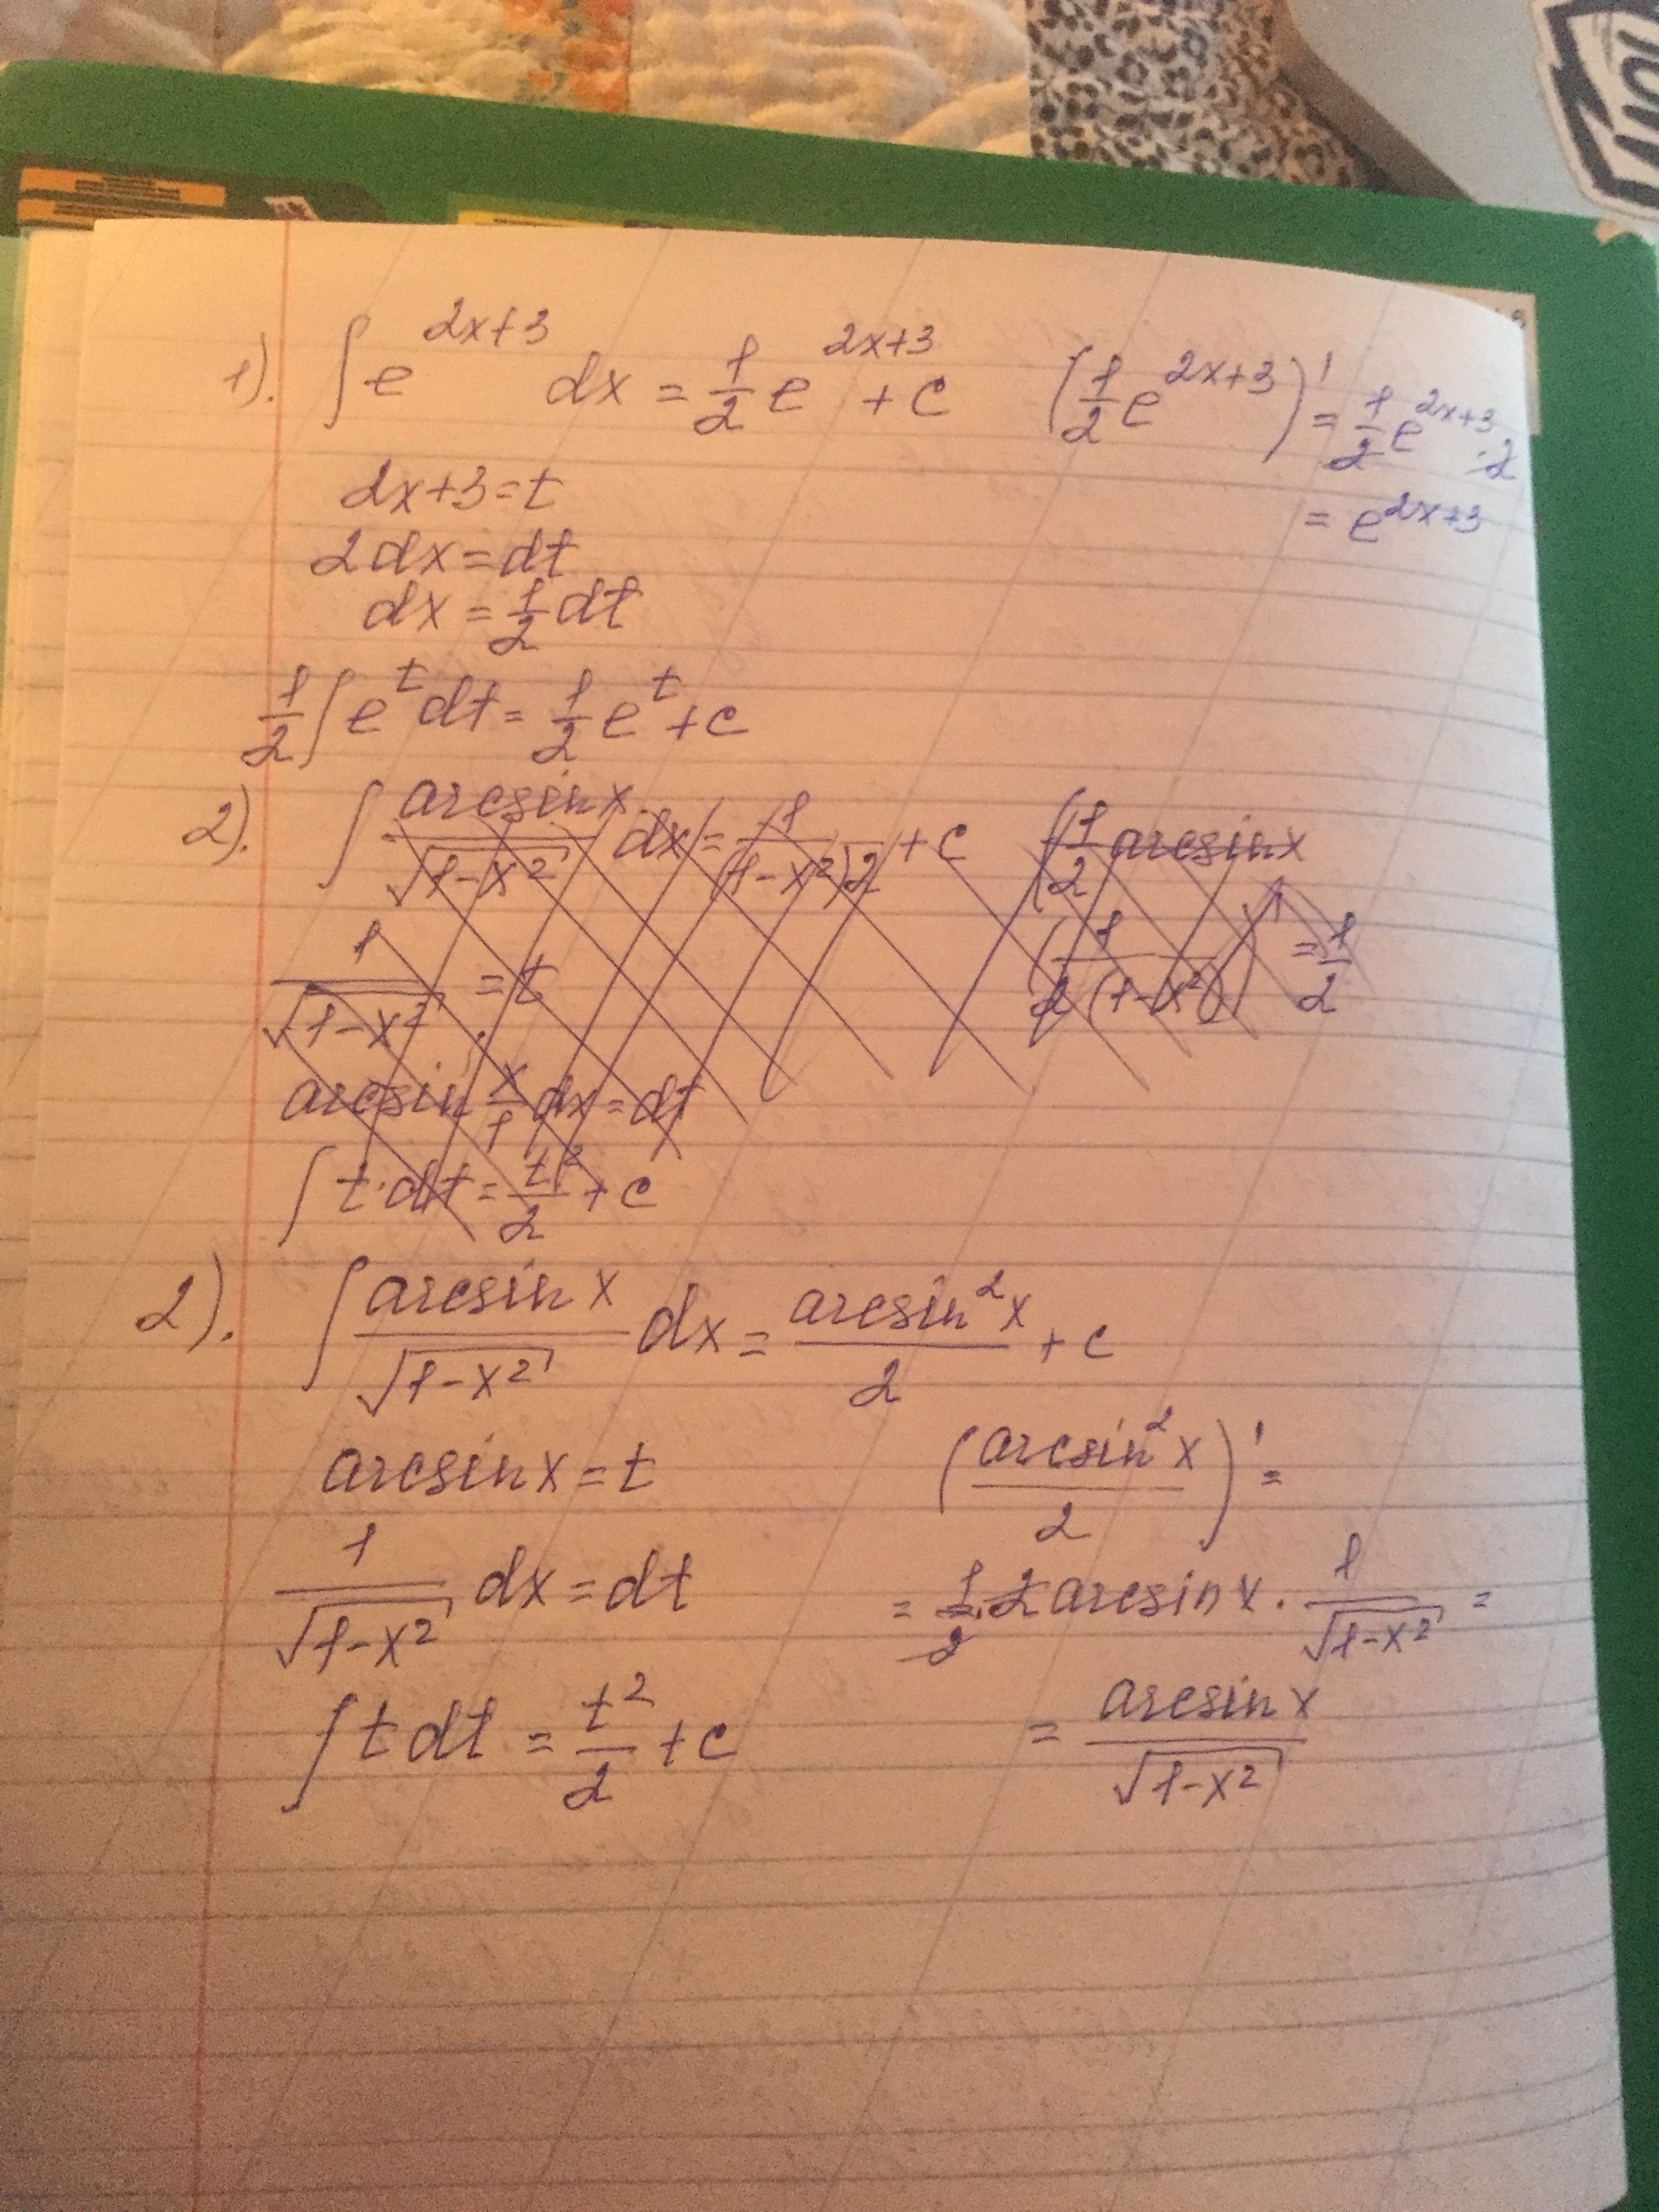 1). ∫e^{2x+3} dx = 1/2 e^{2x+3} + c (1/2 e^{2x+3})' = 1/2 e^{2x+3} · 2
2x+3=t = e^{2x+3}
2dx=dt
dx = 1/2 dt
1/2 ∫e^t dt = 1/2 e^t + c
2). ∫ arcsinx/√(1-x²) dx = 1/(1-x²)2 + c (1/2 arcsinx
1/√(1-x²) = t (1/2(1-x²))' = 1/2
arcsin x/1 dx = dt
∫t·dt = t²/2 + c
2). ∫ arcsin x/√(1-x²) dx = arcsin²x/2 + c
arcsinx = t (arcsin²x/2)' =
1/√(1-x²) dx = dt = 1/2 · 2 arcsin x · 1/√(1-x²) =
∫t dt = t²/2 + c = arcsin x/√(1-x²)